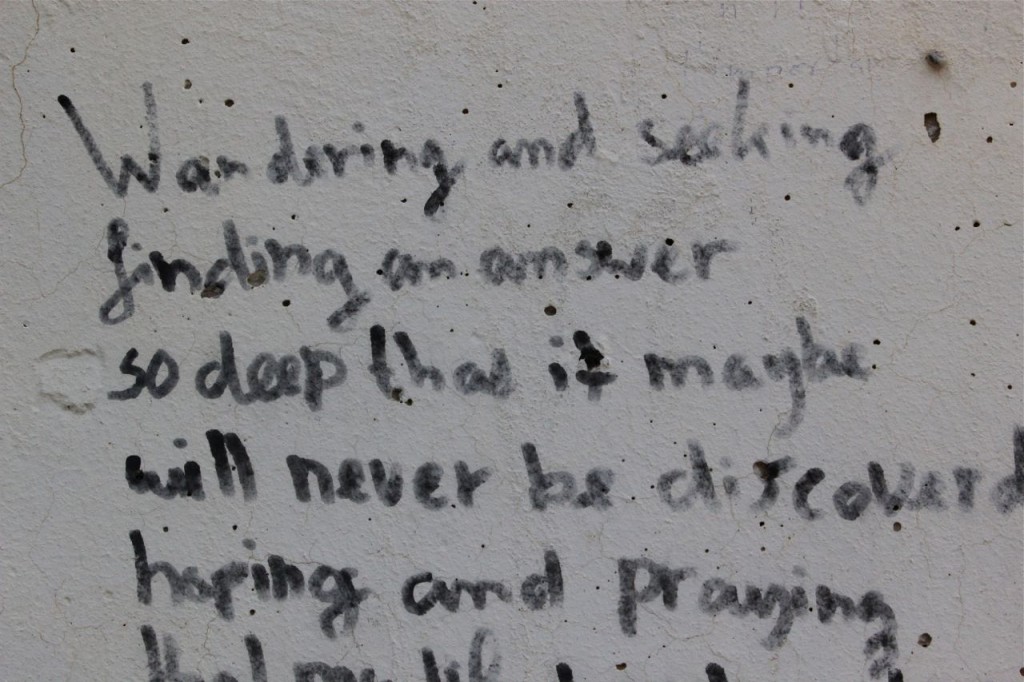 Wandering and seeking
finding an answer
so deep that it maybe
will never be discoverd
hoping and praying
that my lif